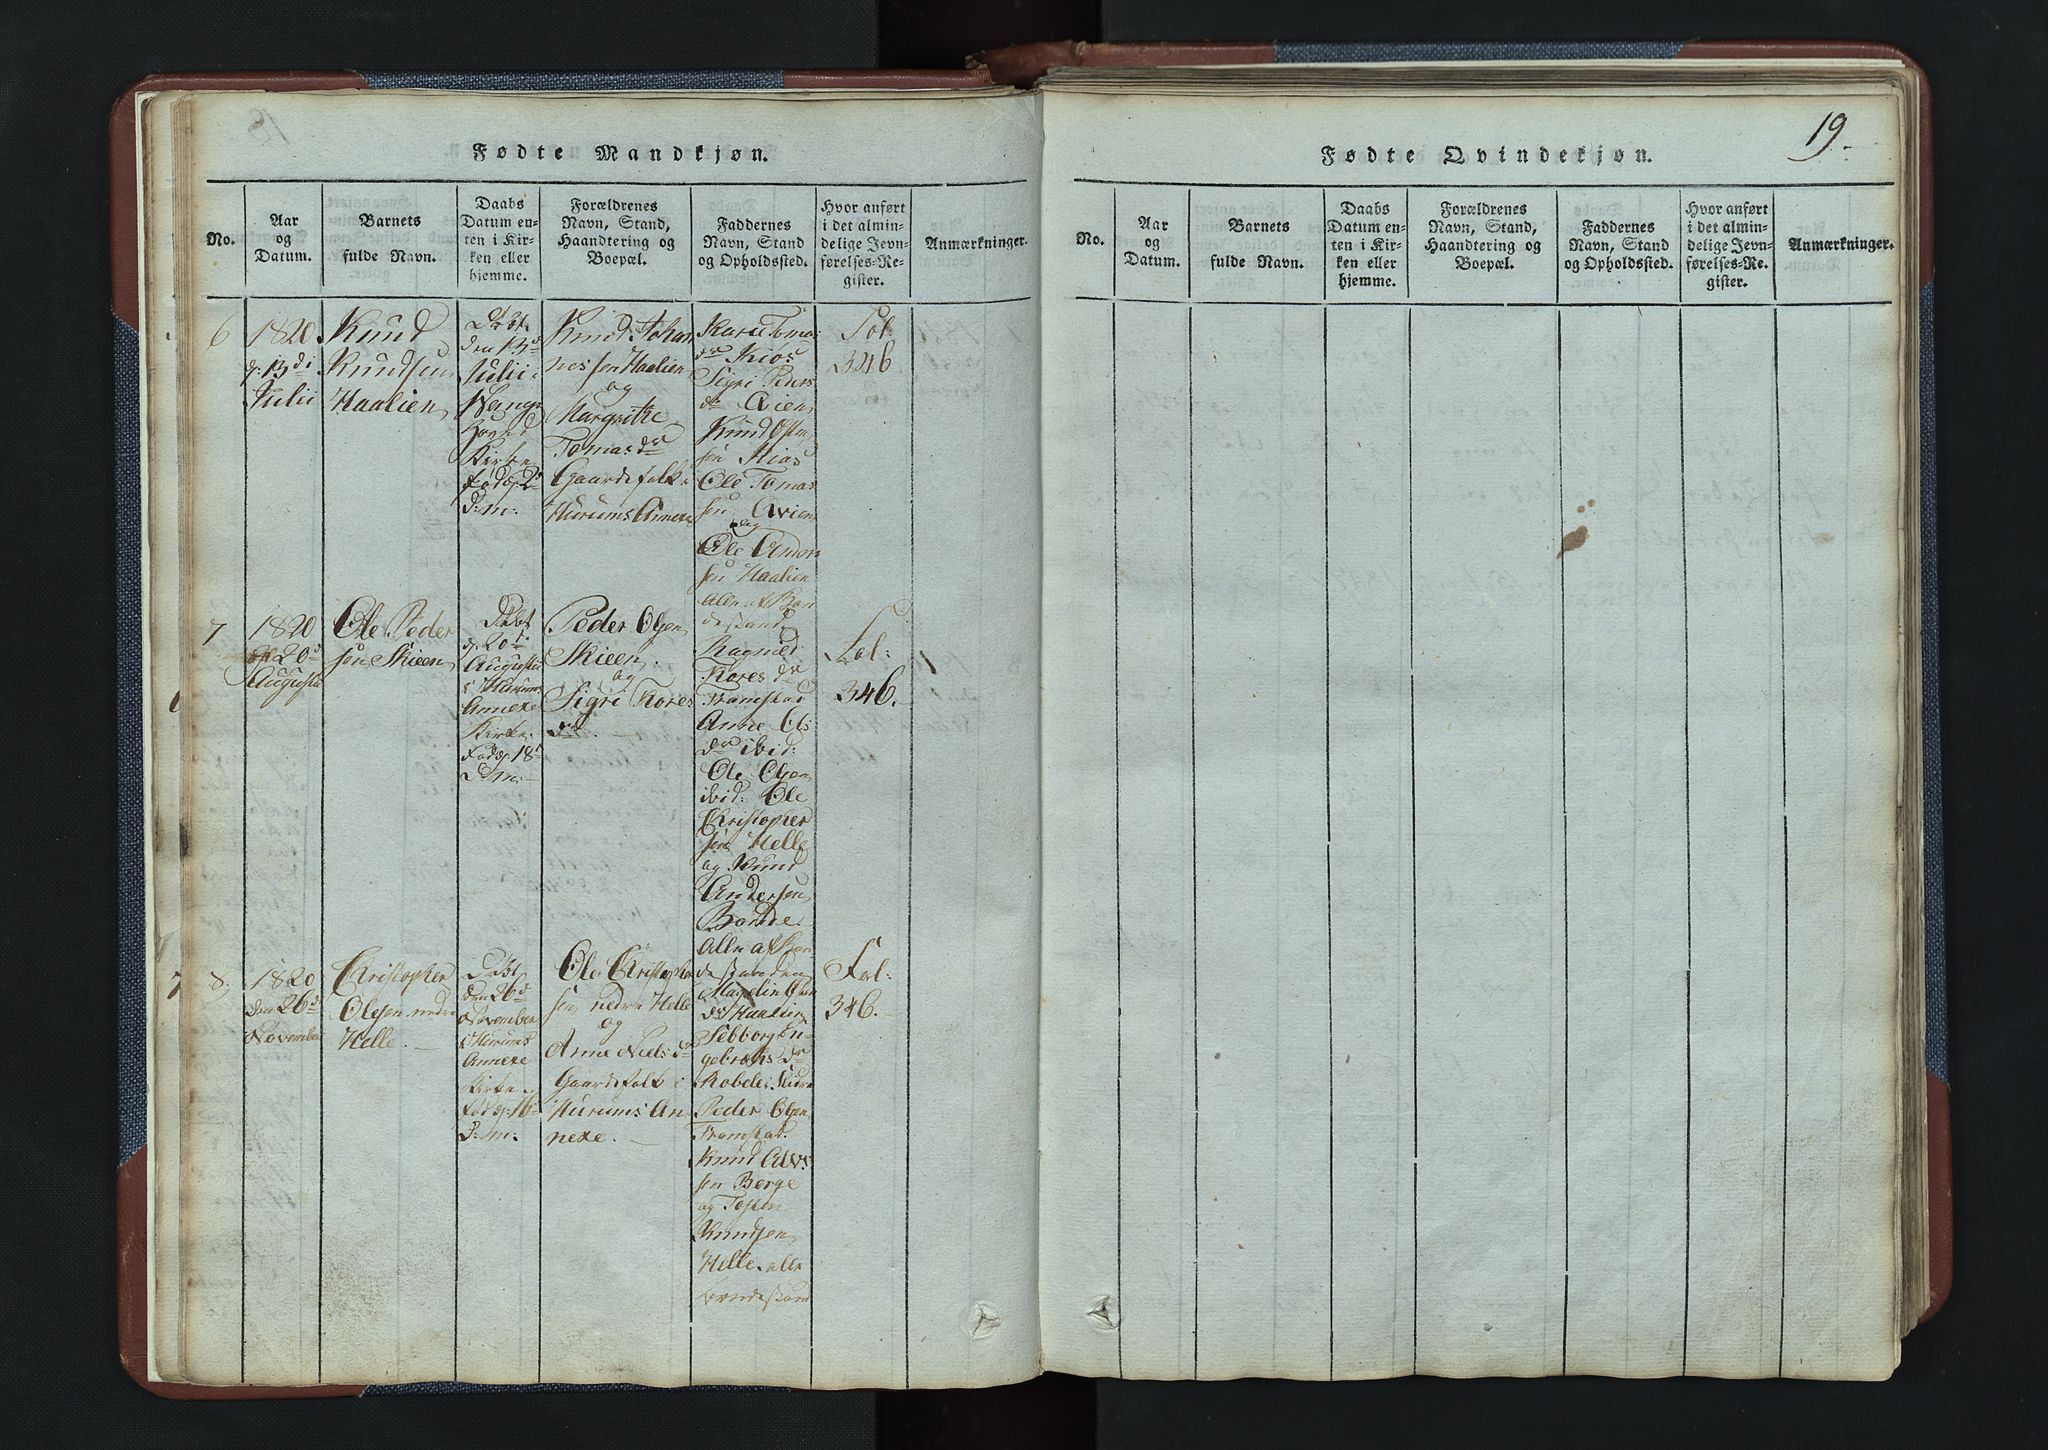 Fødte Mandkjøn.
No.
Aar
og
Datum.
Barnets
fulde Navn.
Daabs
Datum en-
ten i Kir-
ken eller
hjemme.
Forældrenes
Navn, Stand,
Haandtering og
Boepæl.
Faddernes
Navn, Stand
og Opholdssted.
Hvor anført
i det almin-
delige Jevn-
førelses-Re-
gister.
Anmærkninger.
6
1820
d: 13di
Julii
Knud
Knudsen
Haalien
Døbt
den 13d
Julii i
Vangs
Hoved
Kirke
fød d: 2d
d: m:
Knud Johan
nessen Haalien
og
Margrethe
Tomas dr
Gaardefolk i
Hurums Annexe
Kari Tomas
dr Kios
Sigri Peders
dr Qvien
Knud Osten
sen Kios
Ole Tomas
sen Qvien
og
Ole Anders
sen Haalien
Alle af Bon
destand
Fol:
346
7
1820
d 20d
Augusti
Ole Peder
sen Skieen
Døbt
d: 20d
Augusti
i Hurums
Annexe
Kirke.
Fød d: 18d
d: m:
Peder Olsen
Skieen
og
Sigri Kores
dr.
Ragnild
Kores dr
Framstad
Anne Ols
dr ibid:
Ole Olsen
ibid: Ole
Cristopher
sen Helle
og Knud
Andersen
Bonde.
Alle af Bon
destanden
Fol:
346.
7
8.
1820
den 26d
November
Christopher
Olsen nedre
Helle.
Døbt
den 26d
November
i Hurums
Annexe
Kirke.
Fød d: 16d
d: m:
Ole Cristopher
sen nedre Helle
og
Anne Niels dr
Gaardefolk i
Hurums An
nexe.
Magelin Olsen
dr Haalien
Sebborg En-
gebrets dr
Robøle i Slidre
Peder Olsen
Framstad.
Knud Alvs
sen Berge
og Tosten
Knudsen
Helle. alle
bondestand
Fol:
346.
19.
Fødte Qvindekjøn.
No.
Aar
og
Datum.
Barnets
fulde Navn.
Daabs
Datum en-
ten i Kir-
ken eller
hjemme.
Forældrenes
Navn, Stand,
Haandtering og
Boepæl.
Faddernes
Navn, Stand
og Opholdssted.
Hvor anført
i det almin-
delige Jevn-
førelses-Re-
gister.
Anmærkninger.